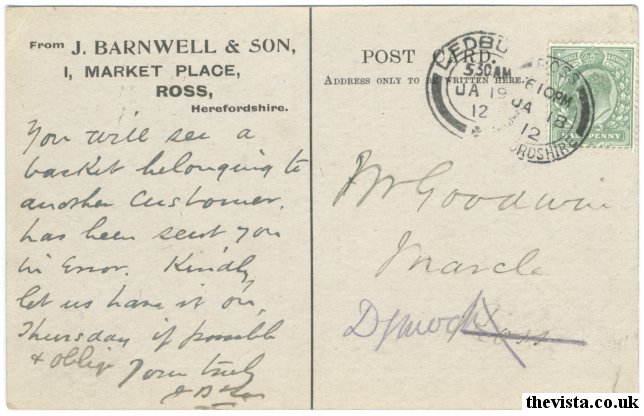 From J. BARNWELL & SON,
1, MARKET PLACE,
ROSS,
Herefordshire.
You will see a
basket belonging to
another Customer,
has been sent you
in Error. Kindly
let us have it on,
Thursday if possible
& oblige
Yours truly
J B & Son
POST CARD.
ADDRESS ONLY TO BE WRITTEN HERE.
LEDBU
5 30 AM
JA 19
12
ROSS
6 10 PM
JA 18
12
ORDSHIRE
HALFPENNY
Mr Goodwin
Marcle
Dymock Ross
thevista.co.uk